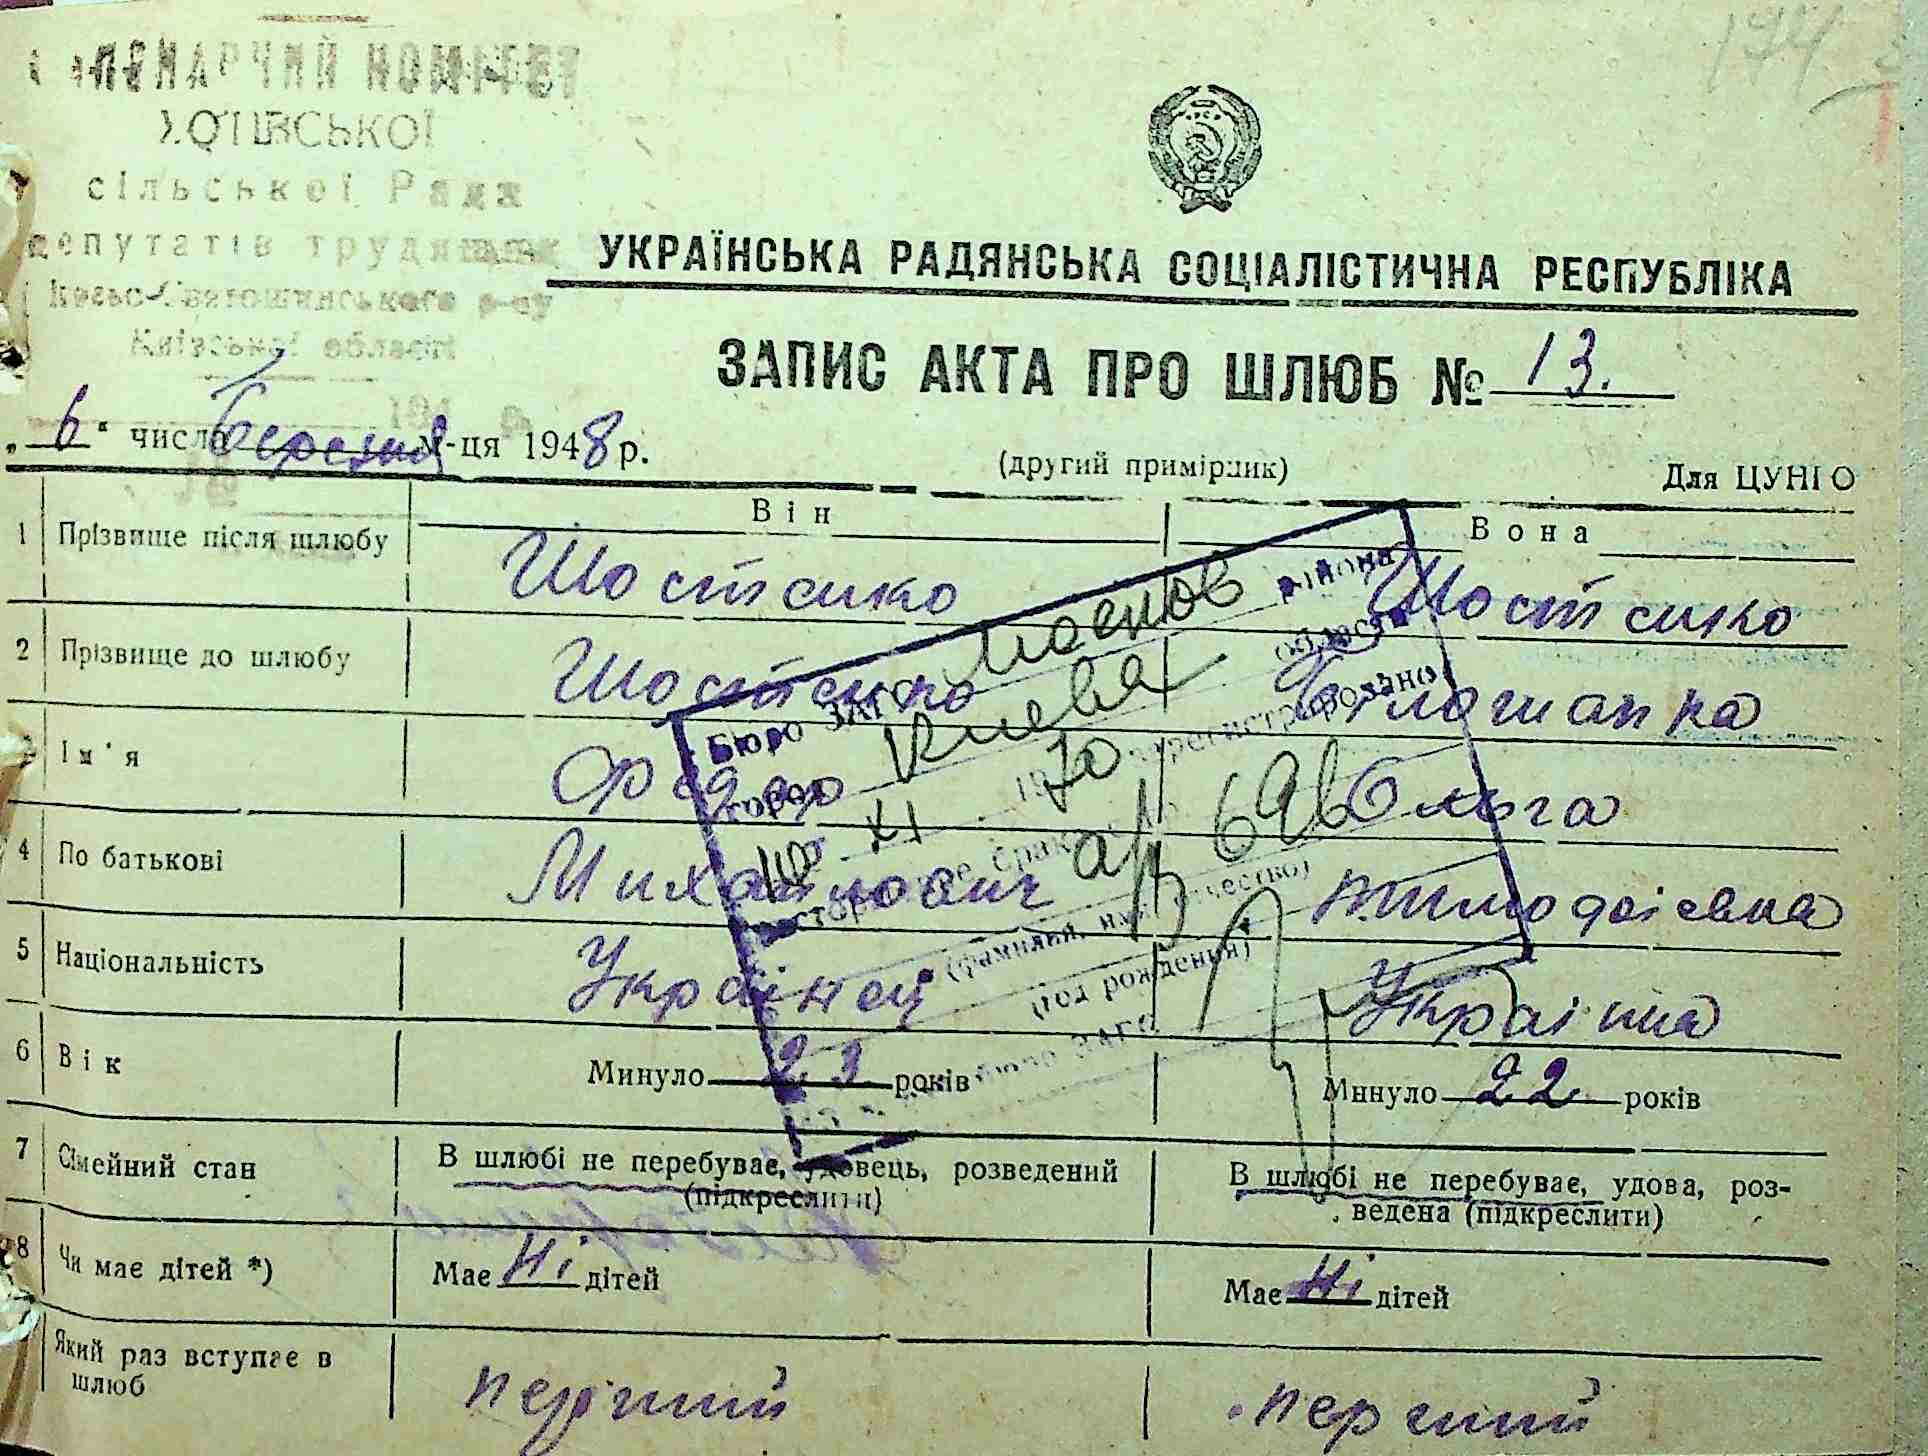 174
ХОТІВСЬКОЇ
сільської Ради
депутатів трудящих
Києво-Святошинського р-ну
Київської області
УКРАЇНСЬКА РАДЯНСЬКА СОЦІАЛІСТИЧНА РЕСПУБЛІКА
ЗАПИС АКТА ПРО ШЛЮБ № 13.
„ 6 “ числа Березня м-ця 1948 р.
(другий примірник) Для ЦУНГО
Він Вона
1 Прізвище після шлюбу Шостенко Шостенко
2 Прізвище до шлюбу Шостенко Білошапка
Ім'я Федор Ольга
4 По батькові Михайлович Тимофієвна
5 Національність Українец Українка
6 Вік Минуло 23 років Минуло 22 років
7 Сімейний стан В шлюбі не перебуває, удовець, розведений (підкреслити) В шлюбі не перебуває, удова, роз-
ведена (підкреслити)
8 Чи має дітей *) Має Ні дітей Має Ні дітей
Який раз вступає в шлюб перший перший
Бюро ЗАГС района
город Киева области
XI 1970 зарегистрировано
расторжение брака ар 696
(фамилия, имя, отчество)
(год рождения)
бюро ЗАГС